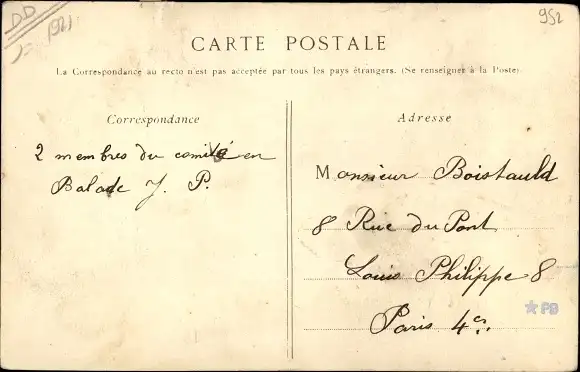 DD
1921
952
CARTE POSTALE
La Correspondance au recto n'est pas acceptée par tous les pays étrangers. (Se renseigner à la Poste).
Correspondance
2 membres du comité en
Balade J. P.
Adresse
Monsieur Boistauld
8 Rue du Pont
Louis Philippe 8
Paris 4e.
PB